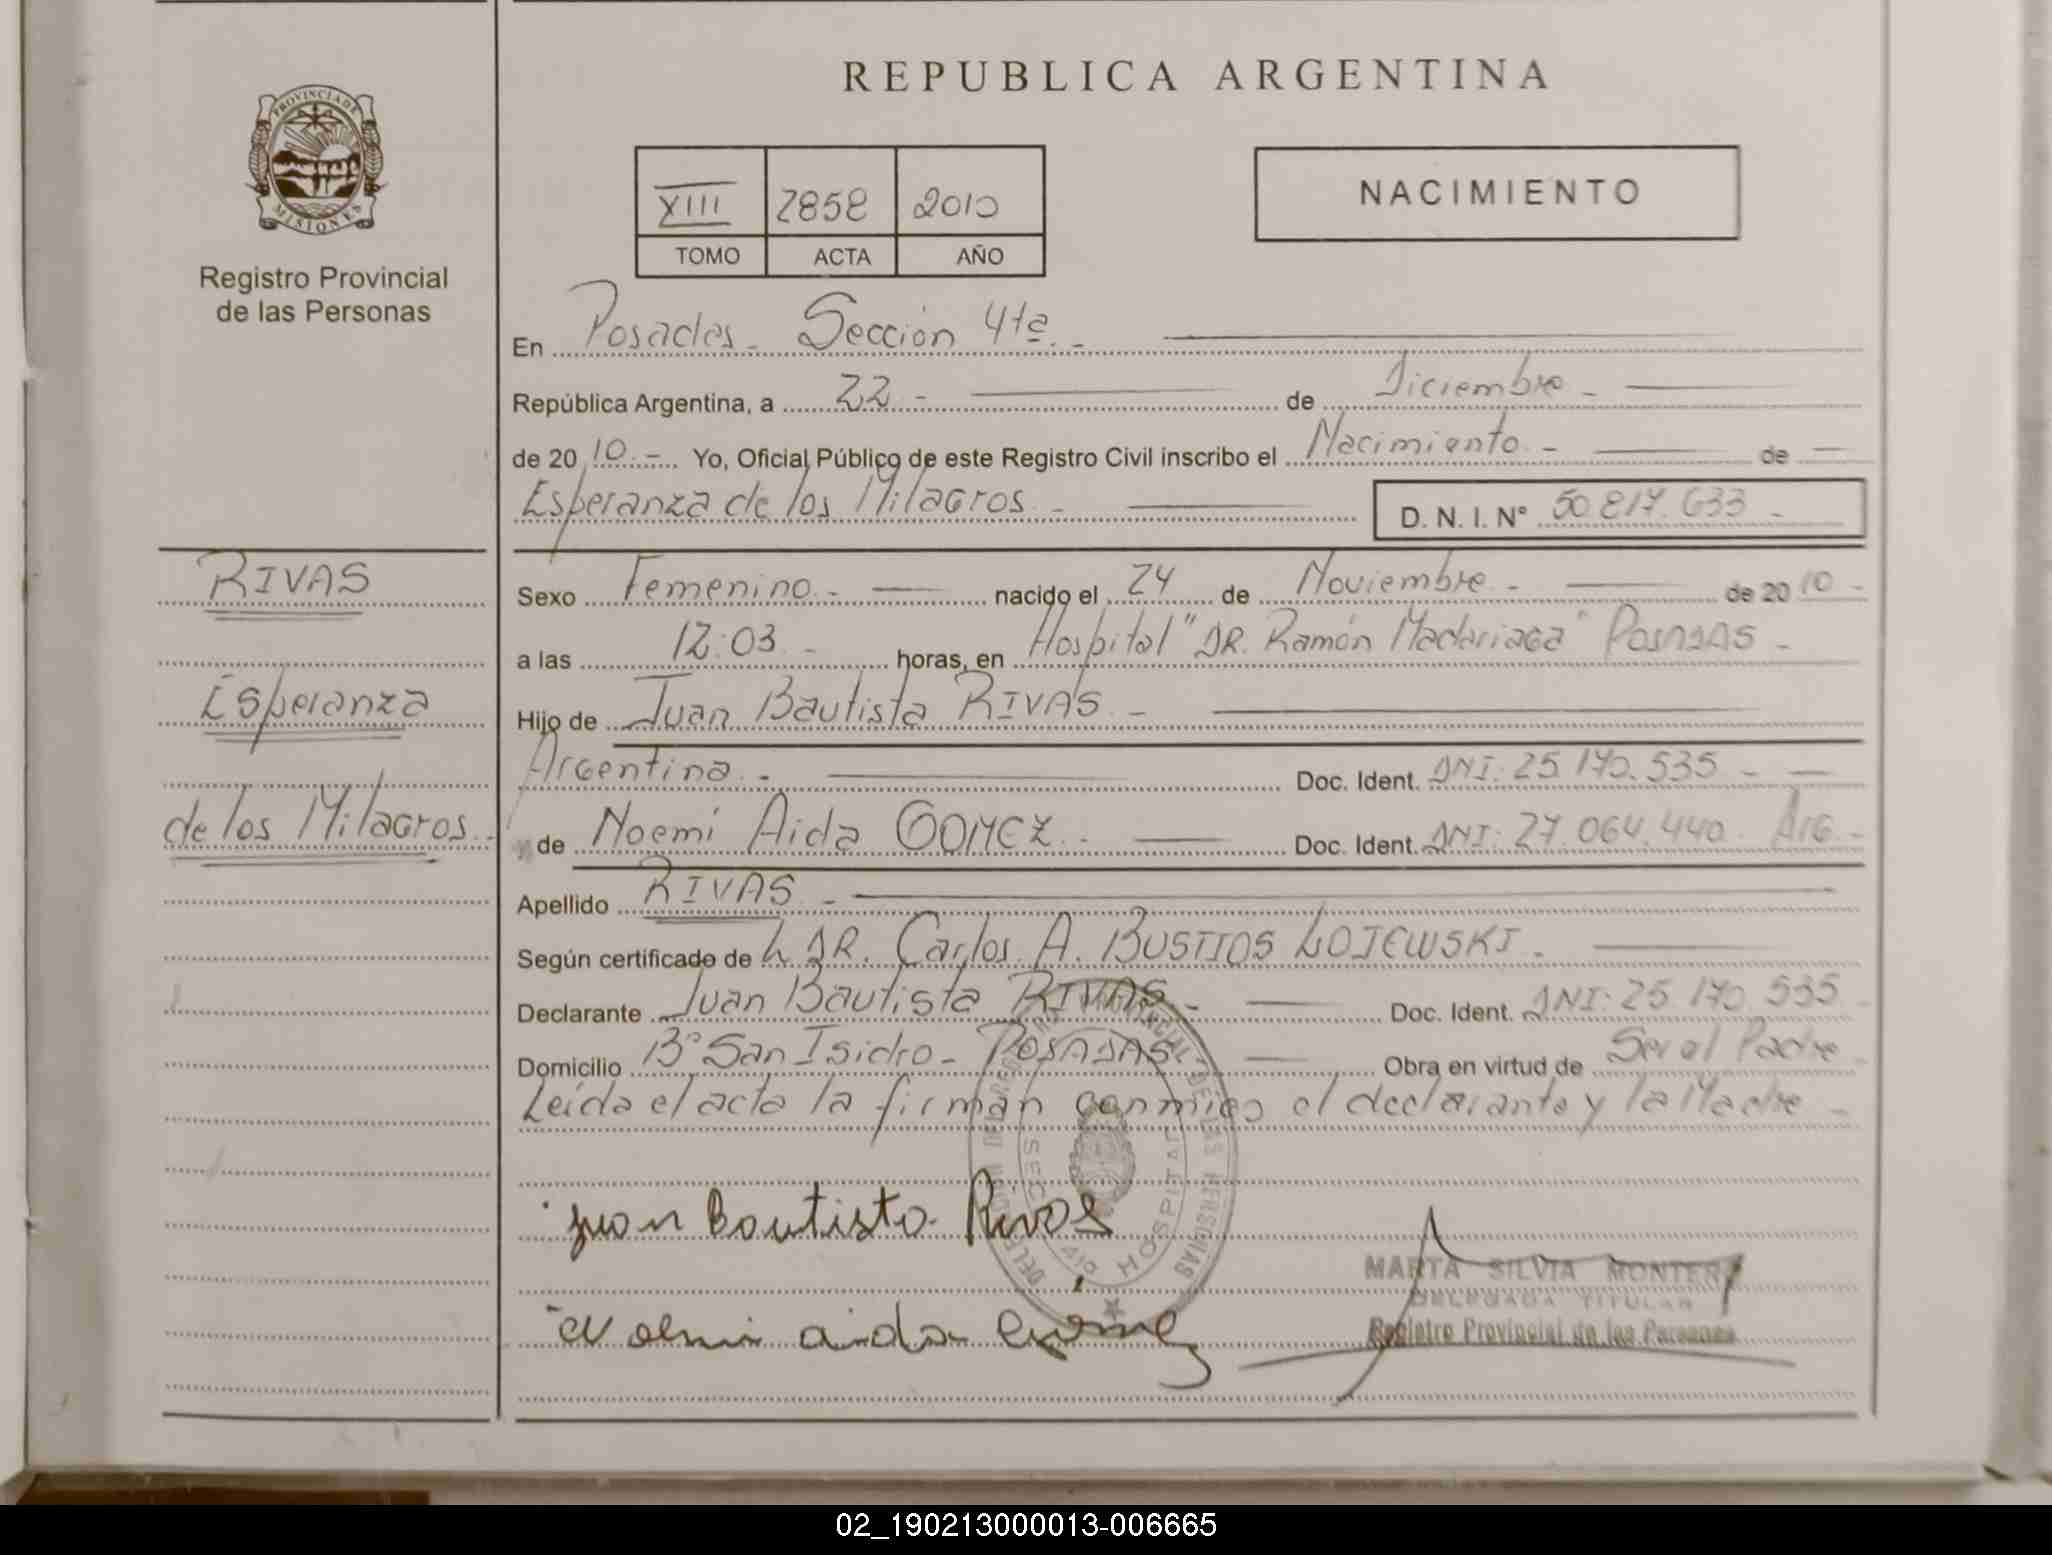 REPUBLICA ARGENTINA
PROVINCIA DE MISIONES
Registro Provincial
de las Personas
XIII 2858 2010
TOMO ACTA AÑO
NACIMIENTO
En Posadas - Sección 4ta. -
República Argentina, a 22 - de Diciembre -
de 2010.- Yo, Oficial Público de este Registro Civil inscribo el Nacimiento - de
Esperanza de los Milagros - D. N. I. N° 50.817.633 -
RIVAS
Esperanza
de los Milagros
Sexo Femenino - nacido el 24 de Noviembre - de 2010 -
a las 12:03 - horas, en Hospital "DR. Ramón Madariaga" POSADAS -
Hijo de Juan Bautista RIVAS -
Argentina - Doc. Ident. DNI: 25.170.535 -
de Noemi Aida GOMEZ - Doc. Ident. DNI: 27.064.440. Arg -
Apellido RIVAS -
Según certificado de L DR. Carlos A. BUSTIOS LOJEWSKI -
Declarante Juan Bautista RIVAS - Doc. Ident. DNI: 25.170.535
Domicilio B° San Isidro - POSADAS - Obra en virtud de Ser el Padre
Leída el acta la firman conmigo el declarante y la Madre -
Juan Bautista Rivas
Noemi aida Gómez
MARTA SILVIA MONTERO
DELEGADA TITULAR
Registro Provincial de las Personas
02_190213000013-006665